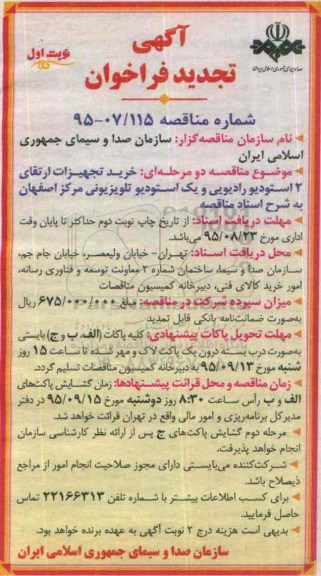 صدا و سیمای جمهوری اسلامی ایران
نوبت اول
آگهی
تجدید فراخوان
شماره مناقصه ۹۵-۰۷/۱۱۵
نام سازمان مناقصه‌گزار: سازمان صدا و سیمای جمهوری
اسلامی ایران
موضوع مناقصه دو مرحله‌ای: خرید تجهیزات ارتقای
۲ استودیو رادیویی و یک استودیو تلویزیونی مرکز اصفهان
به شرح اسناد مناقصه
مهلت دریافت اسناد: از تاریخ چاپ نوبت دوم حداکثر تا پایان وقت
اداری مورخ ۹۵/۰۸/۲۳ می‌باشد.
محل دریافت اسناد: تهران- خیابان ولیعصر، خیابان جام جم،
سازمان صدا و سیما، ساختمان شماره ۲ معاونت توسعه و فناوری رسانه،
امور خرید کالای فنی، دبیرخانه کمیسیون مناقصات
میزان سپرده شرکت در مناقصه: مبلغ ۶۷۵/۰۰۰/۰۰۰ ریال
به‌صورت ضمانت‌نامه بانکی قابل تمدید
مهلت تحویل پاکات پیشنهادی: کلیه پاکات (الف، ب و ج) بایستی
به‌صورت درب بسته درون یک پاکت لاک و مهر شده تا ساعت ۱۵ روز
شنبه مورخ ۹۵/۰۹/۱۳ به دبیرخانه کمیسیون مناقصات تسلیم گردد.
زمان مناقصه و محل قرائت پیشنهادها: زمان گشایش پاکت‌های
الف و ب رأس ساعت ۸:۳۰ روز دوشنبه مورخ ۹۵/۰۹/۱۵ در دفتر
مدیرکل برنامه‌ریزی و امور مالی واقع در تهران قرائت خواهد شد.
مرحله دوم گشایش پاکت‌های ج پس از ارائه نظر کارشناسی سازمان
انجام خواهد پذیرفت.
شرکت‌کننده می‌بایستی دارای مجوز صلاحیت انجام امور از مراجع
ذیصلاح باشد.
برای کسب اطلاعات بیشتر با شماره تلفن ۲۲۱۶۶۳۱۳ تماس
حاصل فرمایید.
بدیهی است هزینه درج ۲ نوبت آگهی به عهده برنده خواهد بود.
سازمان صدا و سیمای جمهوری اسلامی ایران